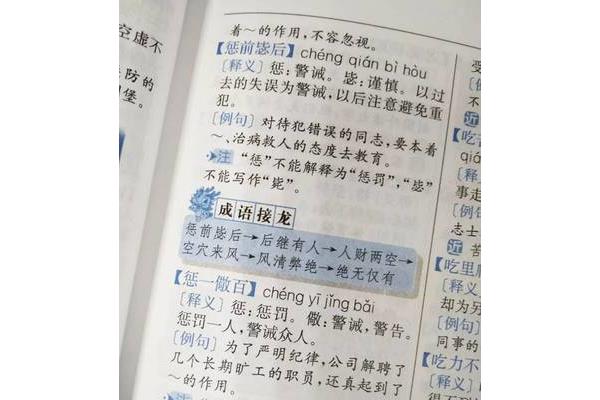 空虚不
防的
堡。
着～的作用，不容忽视。
【惩前毖后】chéng qián bì hòu
〔释义〕惩：警诫。毖：谨慎。以过
去的失误为警诫，以后注意避免重
犯。
〔例句〕对待犯错误的同志，要本着
～、治病救人的态度去教育。
注 “惩”不能解释为“惩罚”，“毖”
不能写作“毙”。
成语接龙
惩前毖后→后继有人→人财两空→
空穴来风→风清弊绝→绝无仅有
【惩一儆百】chéng yī jǐng bǎi
〔释义〕惩：惩罚。儆：警诫，警告。
惩罚一人，警诫众人。
〔例句〕为了严明纪律，公司解聘了
几个长期旷工的职员，还真起到了
～的作用。
注
受
〔例
不
近
【吃
qiá
〔释
事走
〔例
志士
近 苦
【吃里
〔释义
却为另
〔例句
同事的
【吃力不
〔释义〕